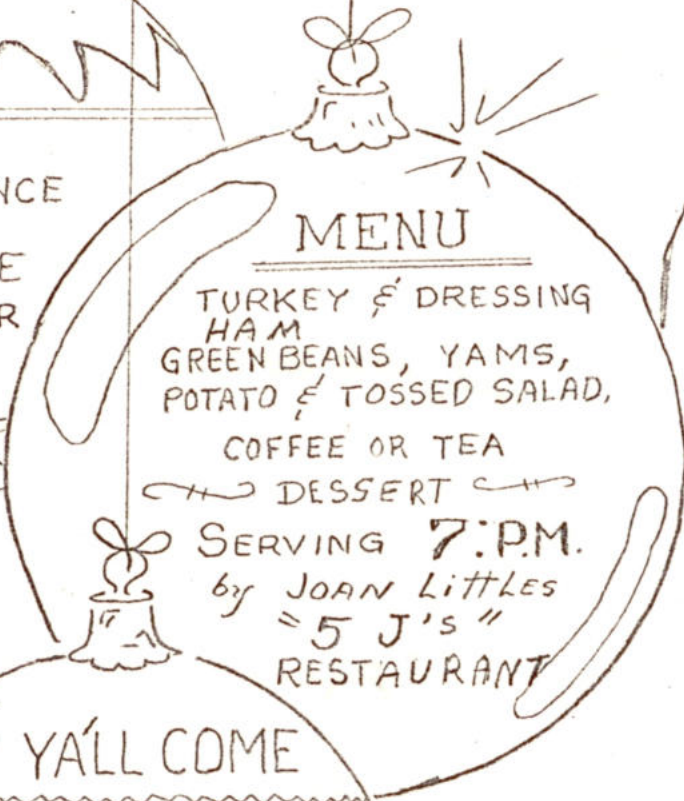 NCE
E
R
MENU
TURKEY & DRESSING
HAM
GREEN BEANS, YAMS,
POTATO & TOSSED SALAD.
COFFEE OR TEA
DESSERT
SERVING 7:P.M.
by JOAN LiTTLES
"5 J's"
RESTAURANT
YA'LL COME